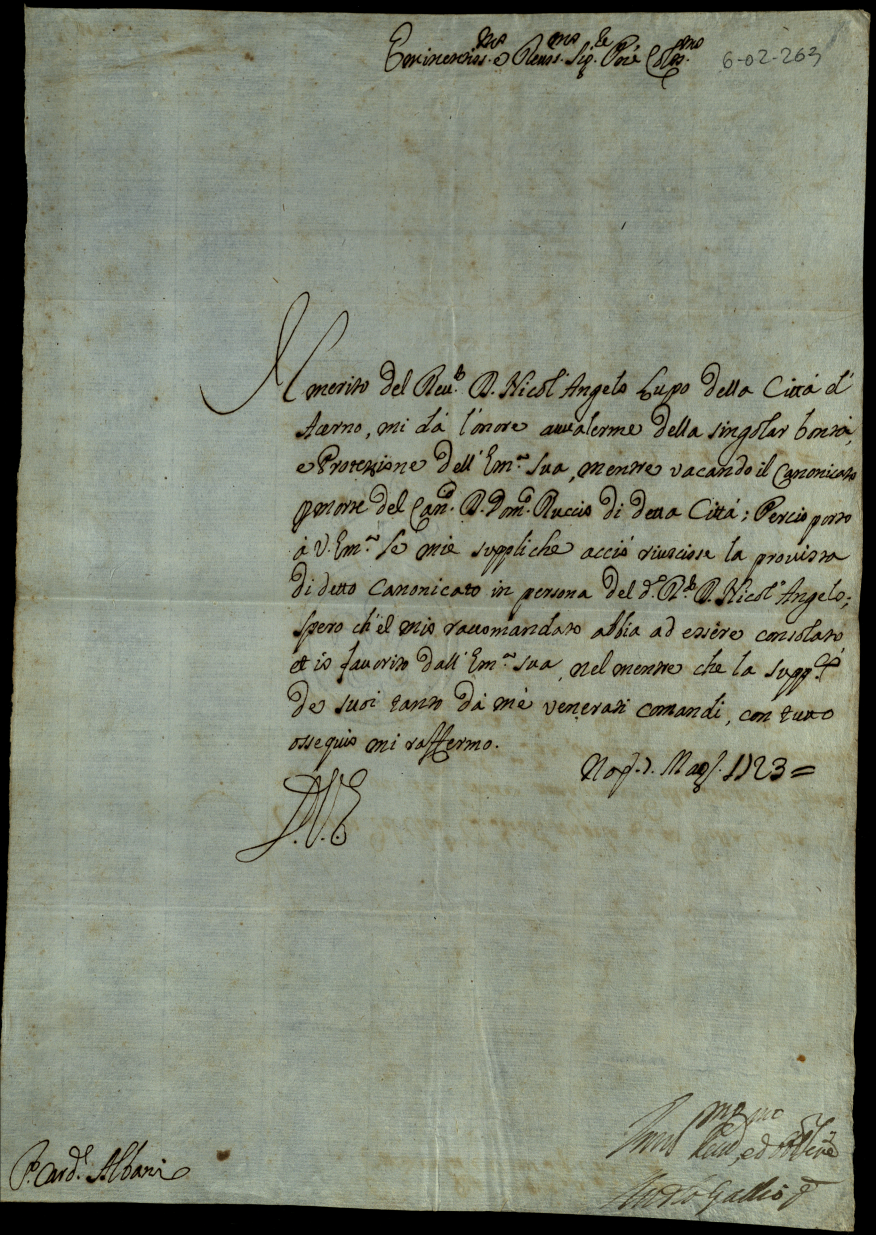 Eminentiss.mo e Reuer.mo Sig.re Pñe Col.mo
6-02-263
Il merito del Reu.do D. Nicol'Angelo Lupo della Città d'
Acerno, mi dà l'onore auualerme della singolar bontà,
e Protezzione dell'Em.za Sua, mentre vacando il Canonicato
p morte del Can.co D. Dom.co Ruccio di detta Città; Perciò porto
à V. Em.za le mie suppliche acciò riuscisse la prouista
di detto Canonicato in persona del d.o R.do D. Nicol'Angelo;
spero ch'el mio raccomandato abbia ad essere consolato
et io fauorito dall'Em.za Sua, nel mentre che la supp.co
de suoi tanto dà mè venerati comandi, con tutto
ossequio mi raffermo.
Nap. 7. Mag. 1723 =
D.V.E.
P.e Card.l Albani